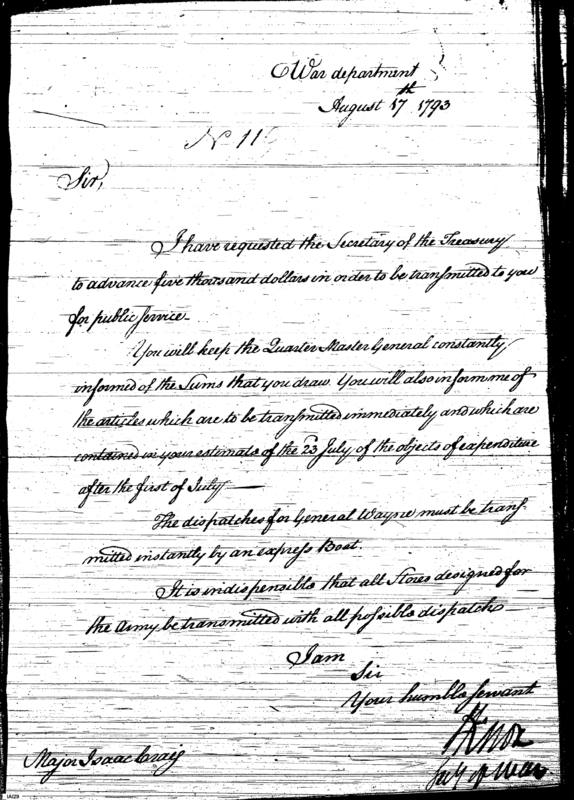 War department
August 17th 1793
No 11
Sir,
I have requested the Secretary of the Treasury
to advance five thousand dollars in order to be transmitted to you
for public service.
You will keep the Quarter Master General constantly
informed of the Sums that you draw. You will also inform me of
the articles which are to be transmitted immediately and which are
contained in your estimate of the 23d July, of the objects of expenditure
after the first of July—
The dispatches for General Wayne must be trans-
mitted instantly by an express Boat.
It is indispensible that all Stores designed for
the Army be transmitted with all possible dispatch
I am
Sir
Your humble servant
H Knox
Secy of War
Major Isaac Craig